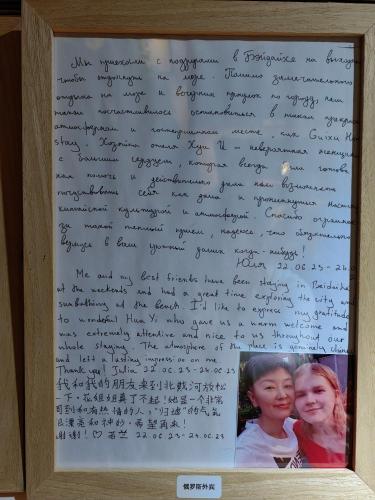 Мы приехали с подругами в Бэйдайхэ на выходные
чтобы отдохнуть на море. Помимо замечательного
отдыха на море и вечерних прогулок по городу, нам
также посчастливилось остановиться в таком прекрасном
атмосферном и гостеприимном месте как Guixu Home
stay. Хозяйка отеля Хуа И - невероятная женщина
с большим сердцем, которая всегда была готова
нам помочь и действительно дала нам возможность
почувствовать себя как дома и проникнуться настоящей
китайской культурой и атмосферой. Спасибо огромное
за такой теплый прием, надеюсь, что обязательно
вернусь в ваш уютный домик когда-нибудь!
Юля 22.06.23-24.0
Me and my best friends have been staying in Beidaihe
at the weekends and had a great time exploring the city and
sunbathing at the beach. I'd like to express my gratitude
to wonderful Hua Yi who gave us a warm welcome and
was extremely attentive and nice to us throughout our
whole staying. The atmosphere of the place is genuinely
and left a lasting impression on me.
Thank you! Julia 22.06.23-24.06.23
我和我的朋友来到北戴河放松
一下。花姐姐真了不起!她是一个非常
周到和有热情的人,"归墟"的气氛
很漂亮和神妙。希望再来!
谢谢!♡ 22.06.23-24.06.23
俄罗斯外宾